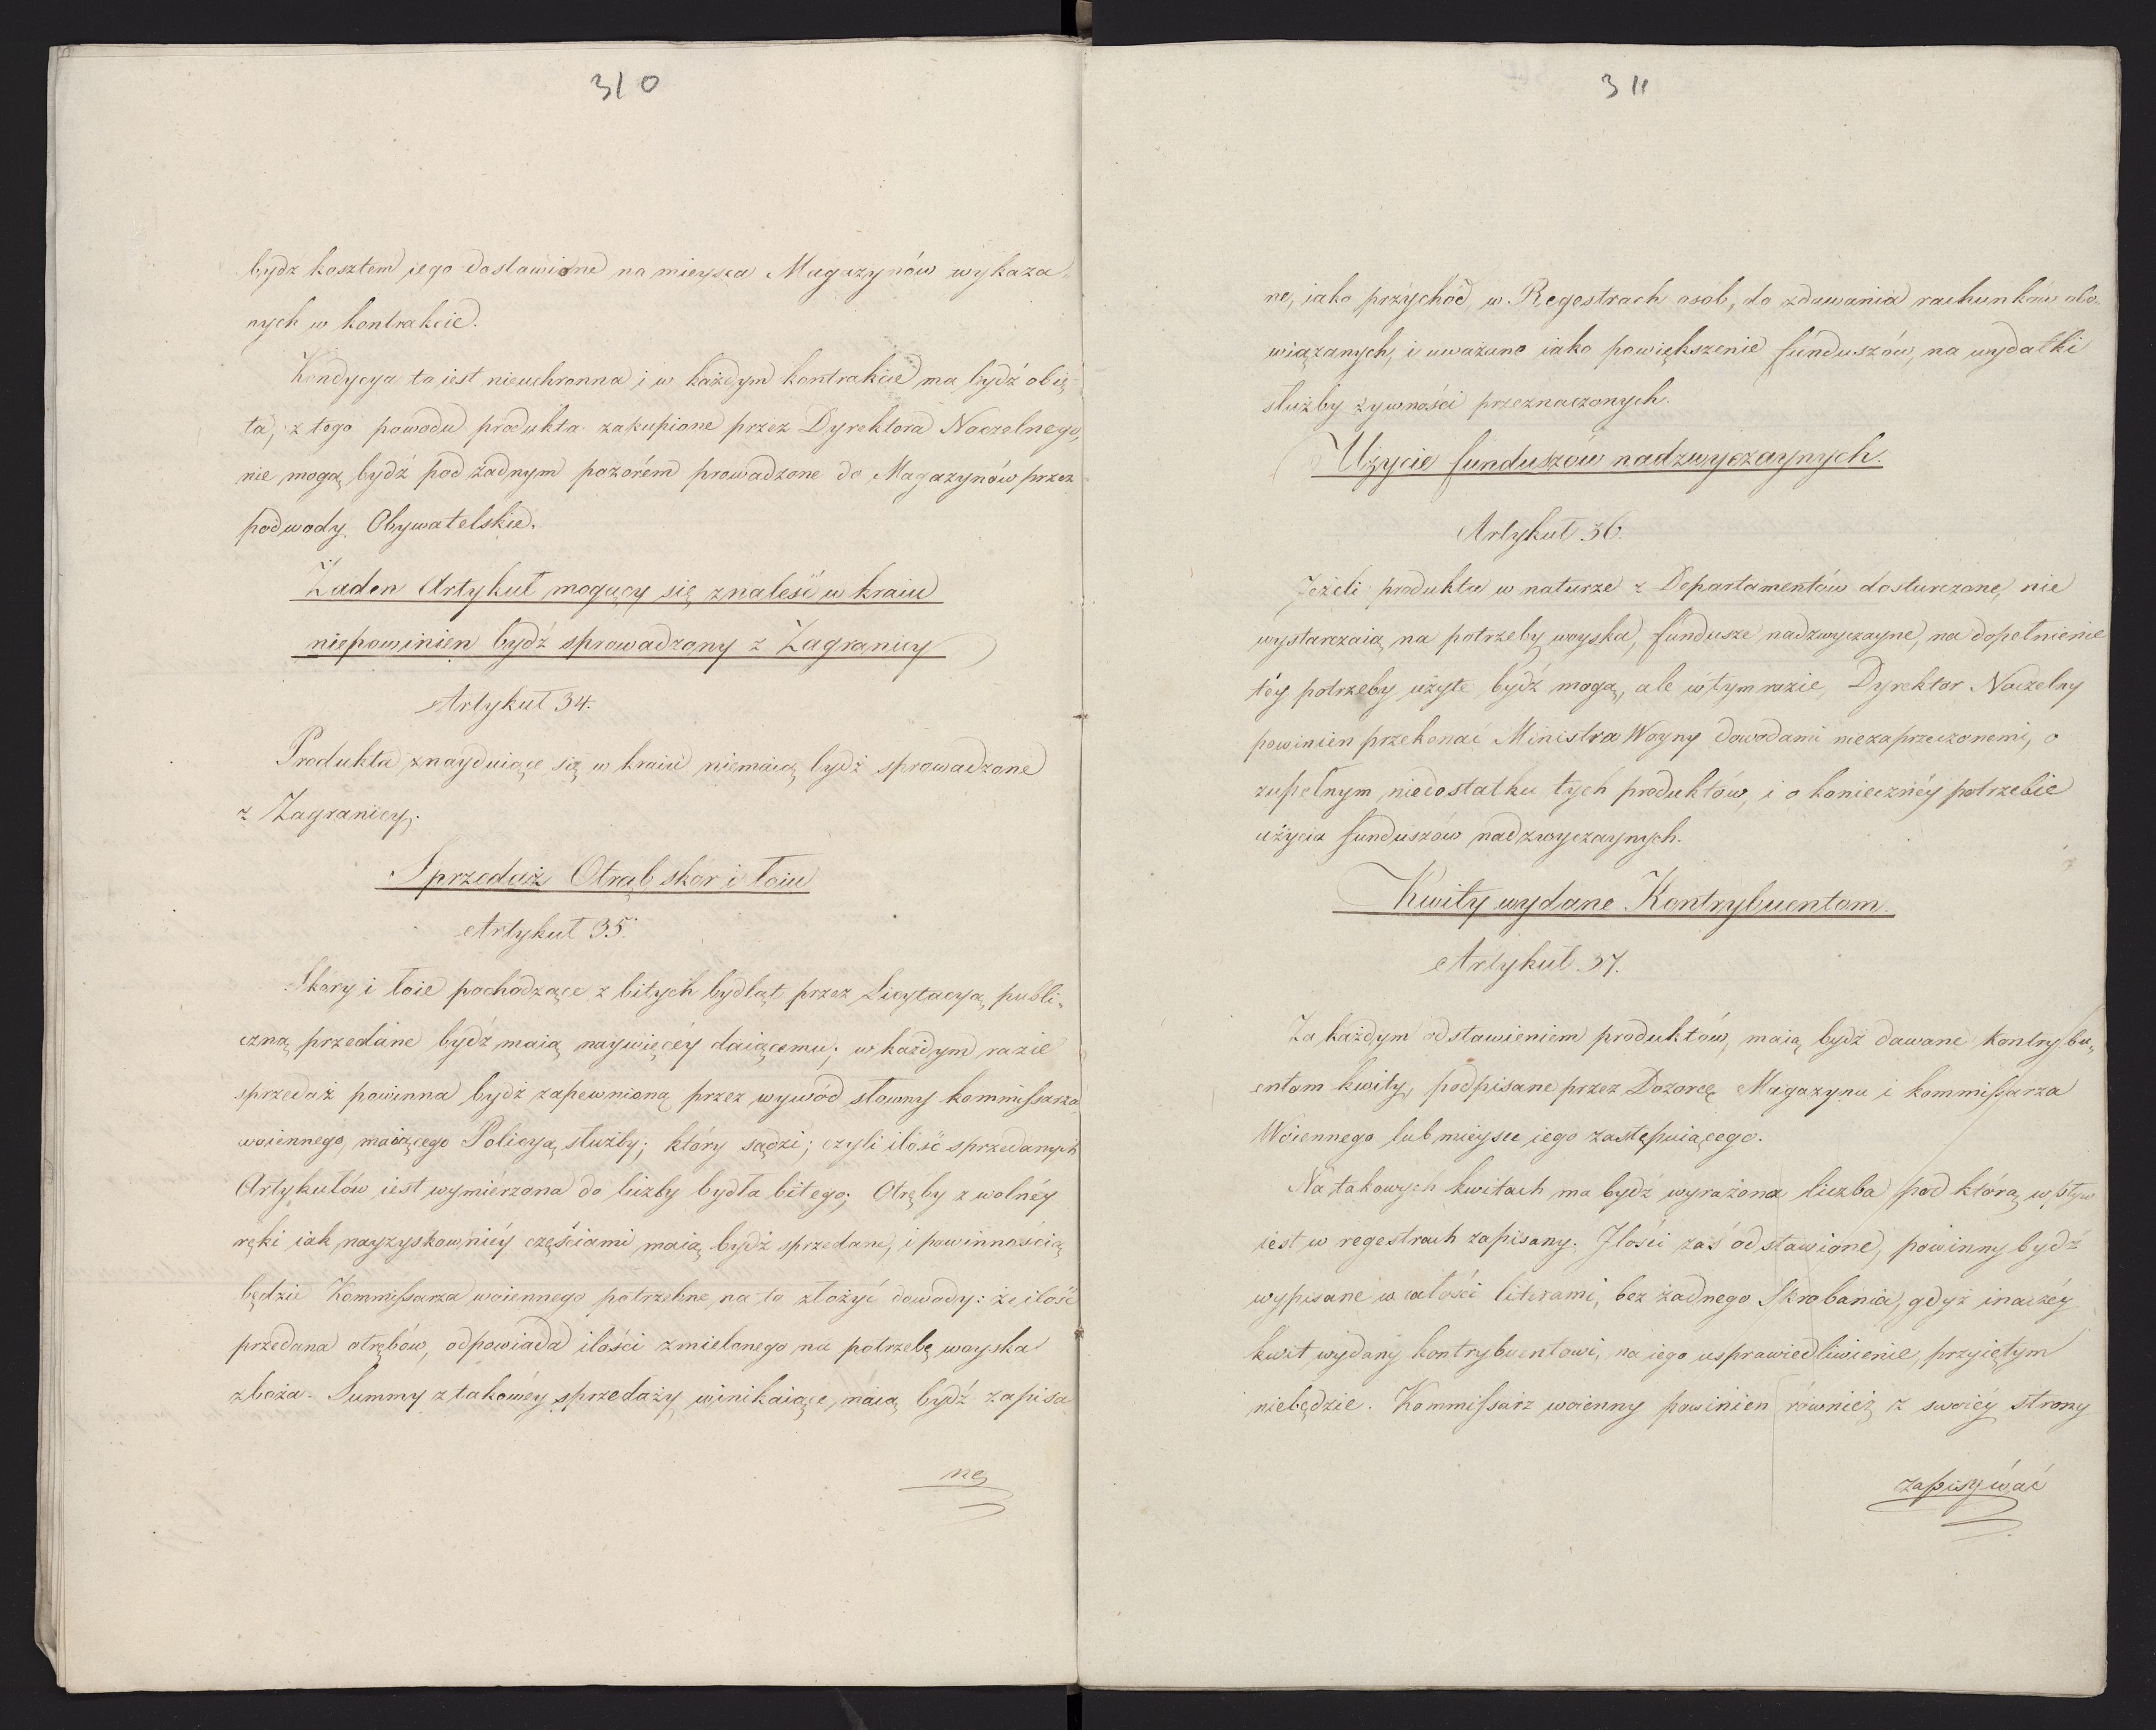 310
bydz kosztem jego dostawione na mieysca Magazynów wykaza-
nych w kontrakcie.
Kondycya ta iest nieuchronna i w każdym kontrakcie ma bydź obię-
ta, z tego powodu produkta zakupione przez Dyrektora Naczelnego,
nie mogą bydź pod żadnym pozorém prowadzone do Magazynów przez
podwody Obywatelskie.
Żaden Artykuł mogący się znaleść w kraiu
niepowinien bydź sprowadzony z Zagranicy
Artykuł 34.
Produkta znayduiące się w kraiu niemaią bydź sprowadzone
z Zagranicy.
Sprzedaż Otrąb skór i łoiu
Artykuł 35.
Skóry i łoie pochodzące z bitych bydląt przez Licytacyą publi-
czną przedane bydź maią naywięcéy daiącemu; w każdym razie
sprzedaż powinna bydź zapewnioną przez wywód słowny kommissarza
woiennego, maiącego Policyą służby; który sądzi; czyli ilość sprzedanych
Artykułów iest wymiérzona do liczby bydła bitego; Otręby z wolnéy
ręki iak nayzyskowniéy częściami maią bydź sprzedane, i powinnością
będzie Kommissarza woiennego potrzebne na to złożyć dowody: że ilość
przedana otrębów, odpowiada ilości zmielonego na potrzebę woyska
zboża. Summy z takowéy sprzedaży winikaiące, maią bydź zapisa
ne
311
ne, iako przychód, w Regestrach osób, do zdawania rachunków obo-
wiązanych, i uważane iako powiększenie funduszów, na wydatki
służby żywności przeznaczonych.
Użycie funduszów nadzwyczaynych.
Artykuł 36.
Jeżeli produkta w naturze z Departamentów dostarczone, nie
wystarczaią na potrzeby woyska, fundusze nadzwyczayne, na dopełnienie
téy potrzeby użyte bydź mogą, ale w tym razie, Dyrektor Naczelny
powinien przekonać Ministra Woyny dowodami niezaprzeczonemi, o
zupełnym niedostatku tych produktów, i o koniecznéy potrzebie
użycia funduszów nadzwyczaynych.
Kwity wydane Kontrybuentom.
Artykuł 37.
Za każdym odstawieniem produktów, maią bydź dawane kontrybu-
entom kwity, podpisane przez Dozorcę Magazynu i kommissarza
Woiennego lub mieysce iego zastępuiącego.
Na takowych kwitach ma bydź wyrażona liczba pod którą wpływ
iest w regestrach zapisany. Ilości zaś odstawione, powinny bydź
wypisane w całości literami, bez żadnego Skrobania, gdyż inaczéy
kwit wydany kontrybuentowi, na iego usprawiedliwienie, przyiętym
niebędzie. Kommissarz woienny powinien również z swoiéy strony
zapisywać